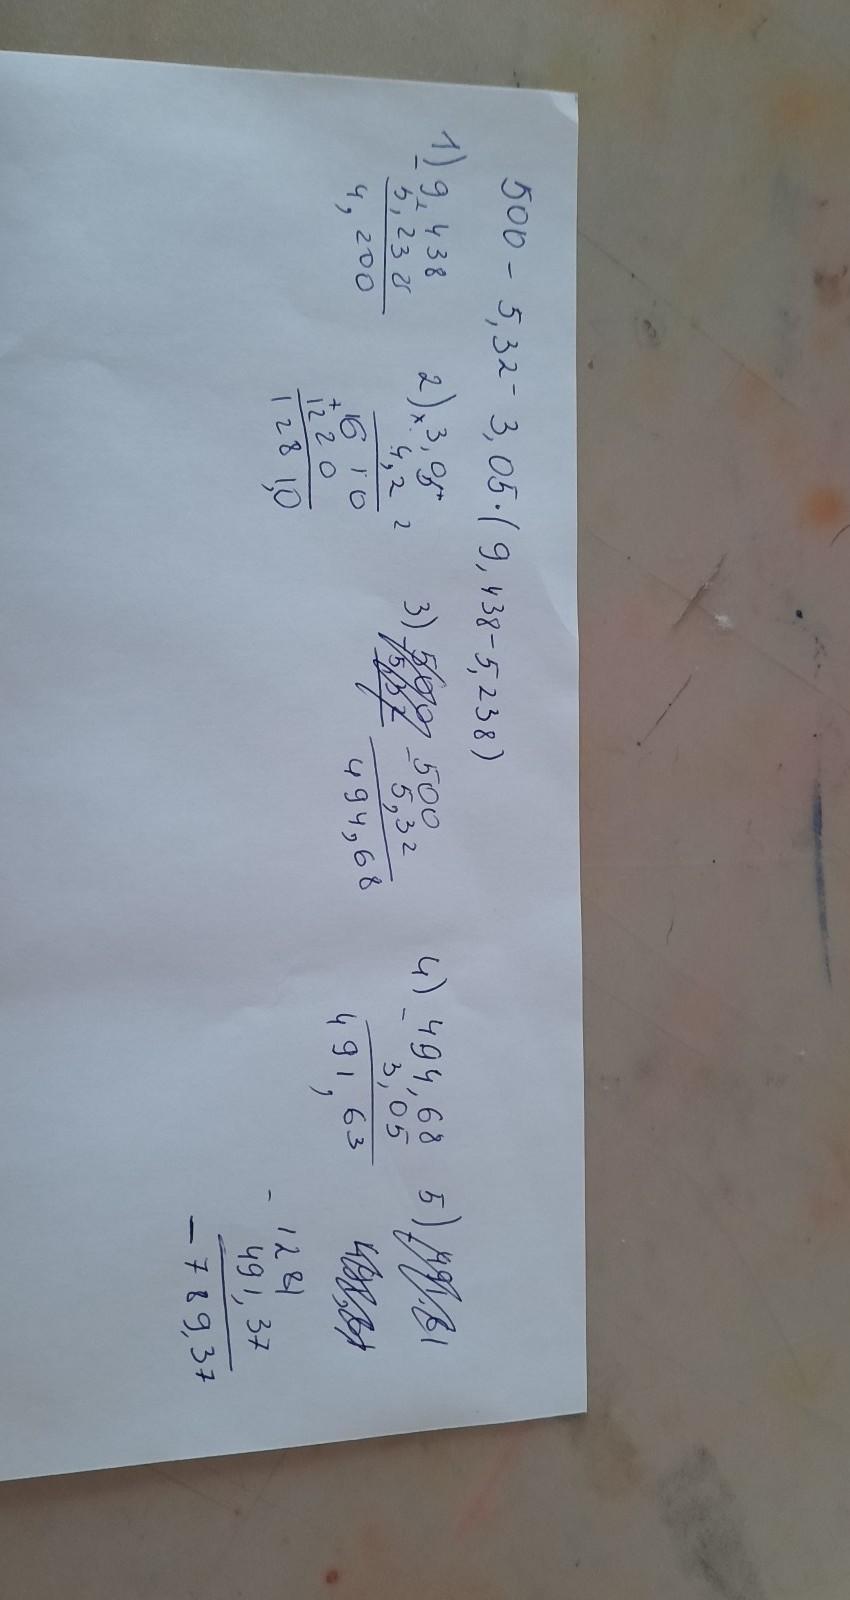 500 - 5,32 - 3,05 · (9,438 - 5,238)
1) - 9,438
5,238
4,200
2) × 3,05
4,2
+ 16 10
12 2 0
1 2 8 1,0
3) - 500
5,32
494,68
4) - 494,68
3,05
491,63
5)
- 1281
491,37
- 789,37